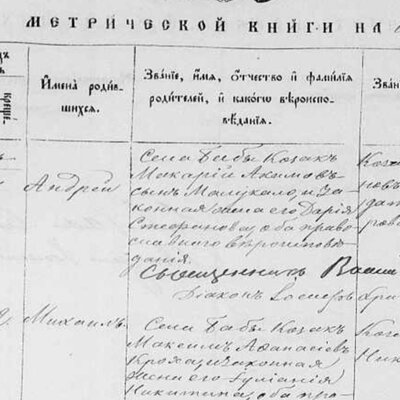 МЕТРИЧЕСКОЙ КНИГИ НА
Креще.
Имена родив-
шихся.
Званіе, имя, отчество и фамилія
родителей, и какого вѣроиспо-
вѣданія.
Зван
Андрей
Села Бабы Козак
Макарій Акимовъ
сынъ Малукало, и за
конная жена его Дарія
Стефановна, оба право
славнаго вѣроисповѣ
данія.
Священникъ Васи
Діаконъ
Михаилъ.
Села Бабы Козак
Максимъ Аѳанасіев
законная
жена его Іуліанія
Никитина, оба пра-
Коза
новъ
Коза
Ник